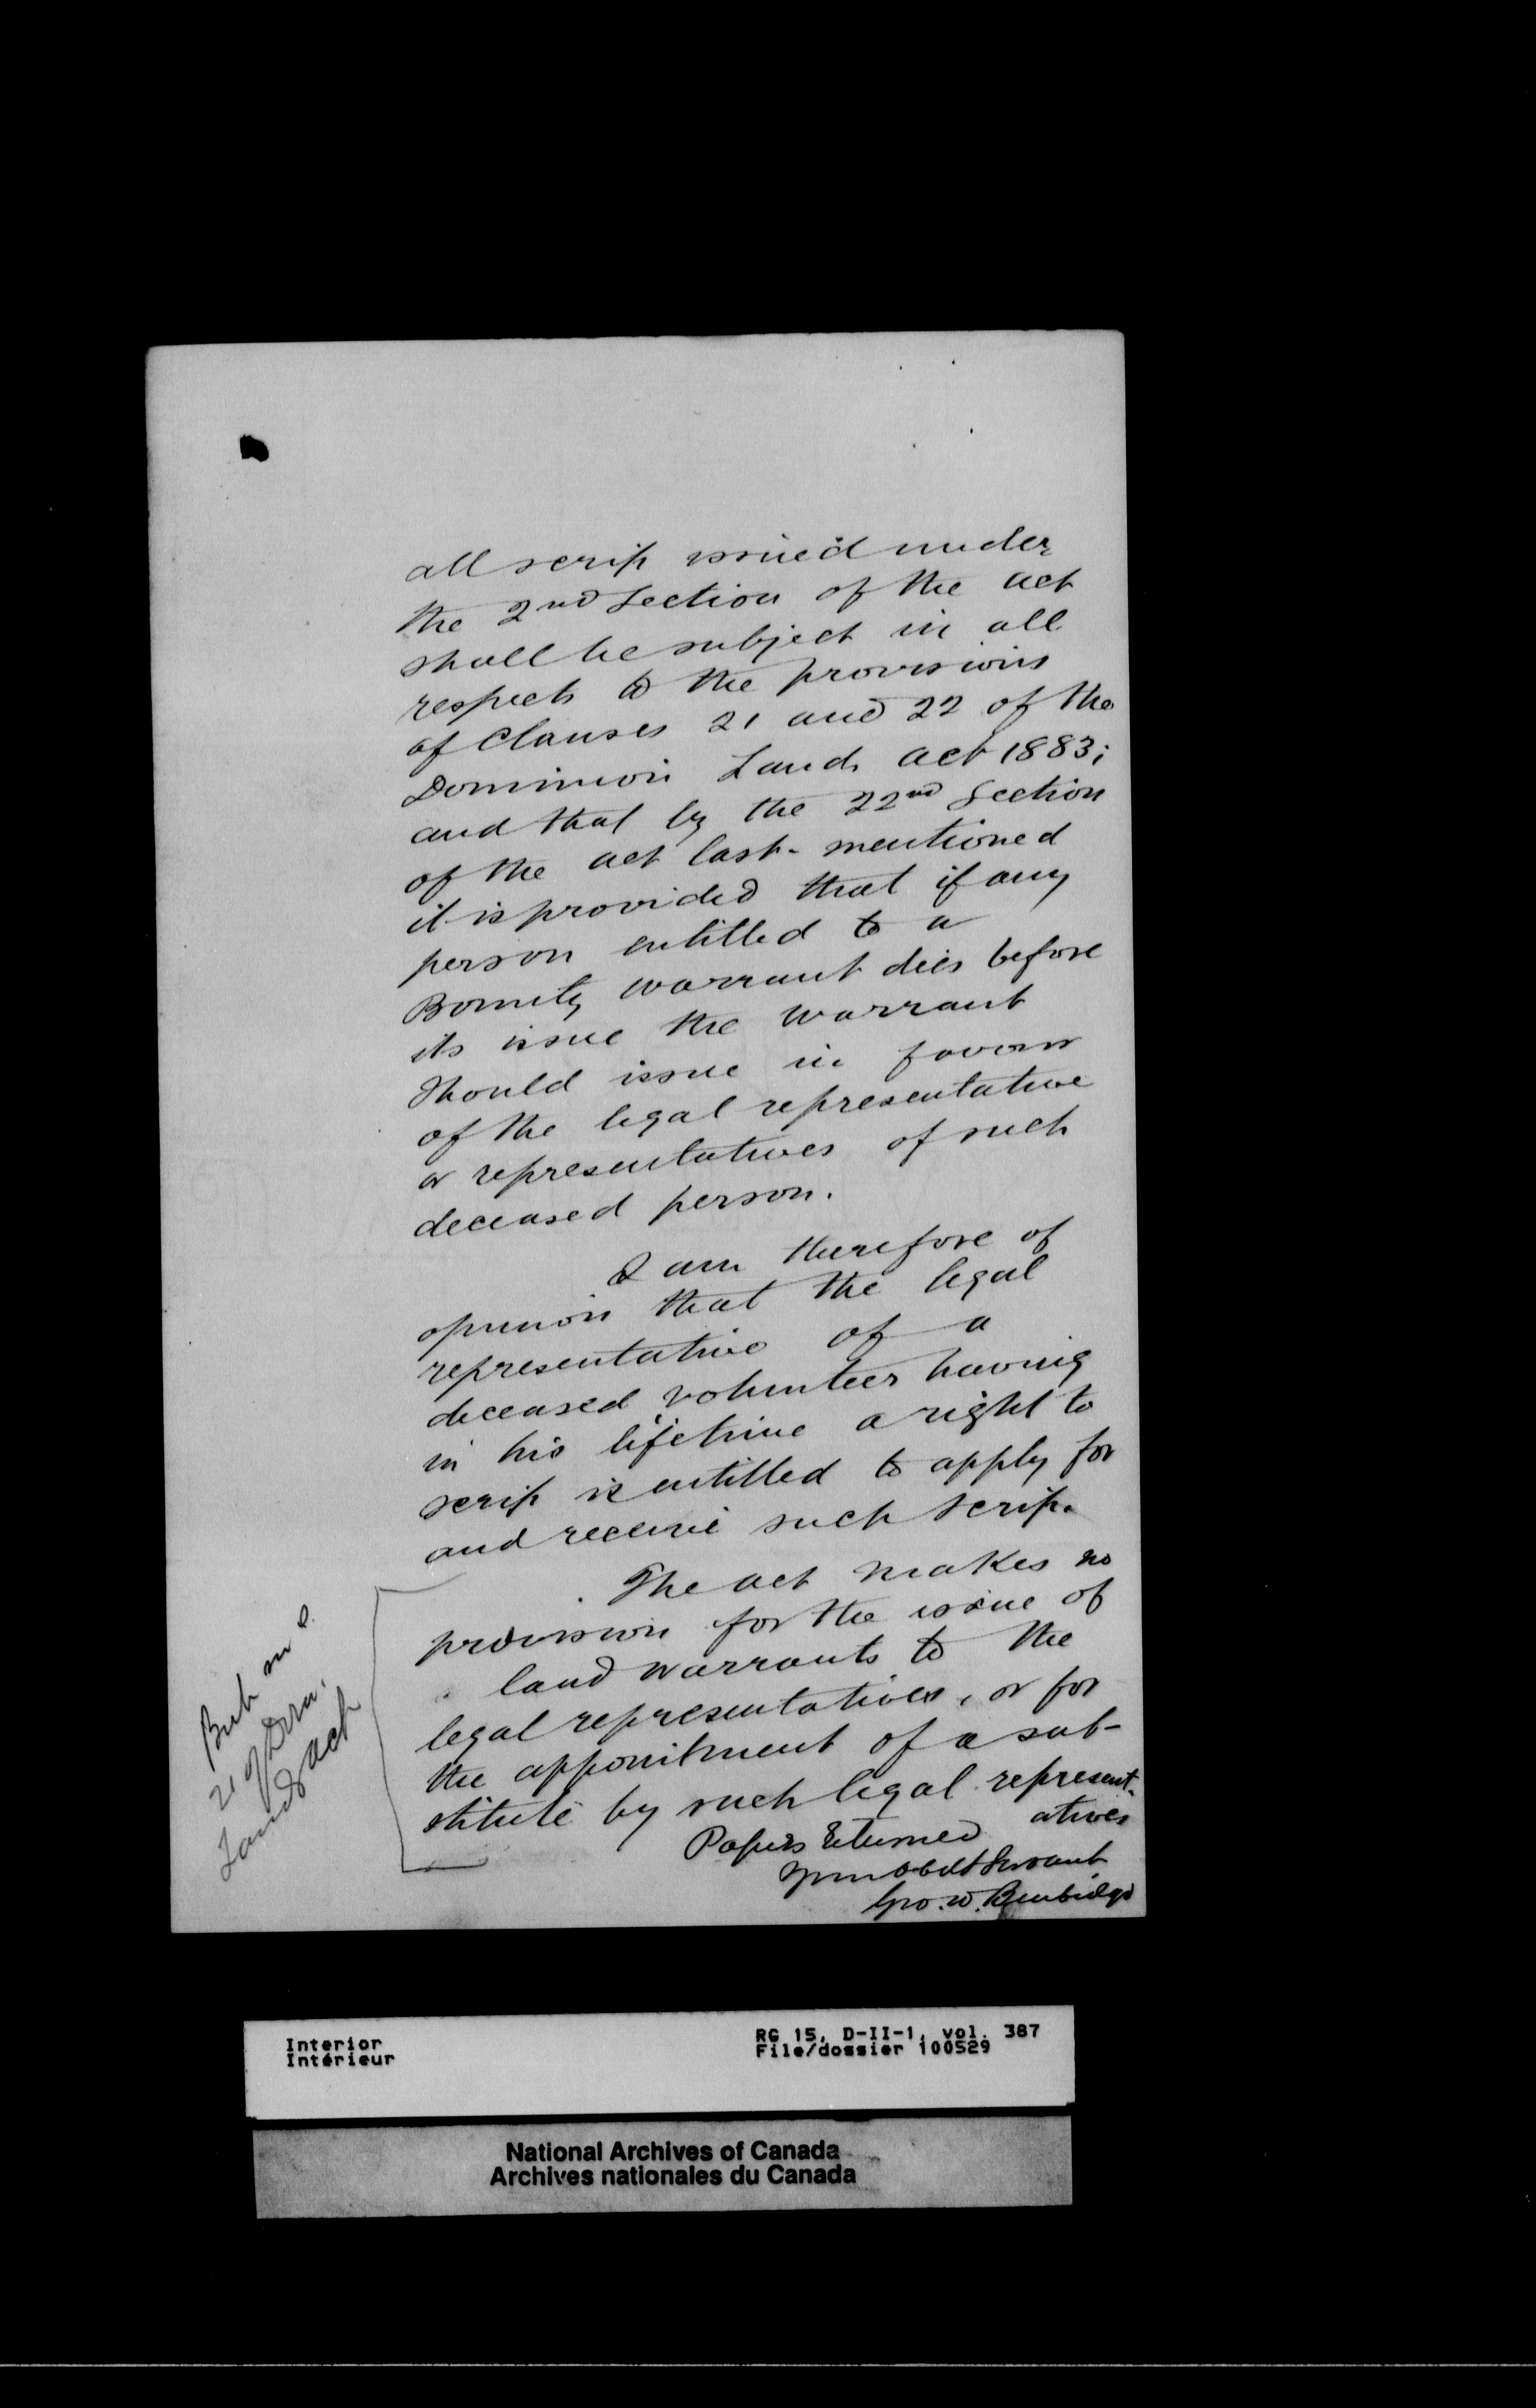 all scrip issued under
the 2nd Section of the act
shall be subject in all
respects to the provisions
of Clauses 21 and 22 of the
Dominion Lands act 1883;
and that by the 22nd Section
of the act last-mentioned
it is provided that if any
person entitled to a
Bounty warrant dies before
its issue the warrant
should issue in favour
of the legal representative
or representatives of such
deceased person.
I am therefore of
opinion that the legal
representative of a
deceased volunteer having
in his lifetime a right to
scrip is entitled to apply for
and receive such scrip.
The act makes no
provision for the issue of
land warrants to the
legal representatives, or for
the appointment of a sub-
stitute by such legal represent-
atives
Papers returned
Your obdt Servant
Geo. W. Burbidge
But
21 of Dom.
Lands act
Interior
Intérieur
RG 15, D-II-1, vol. 387
File/dossier 100529
National Archives of Canada
Archives nationales du Canada